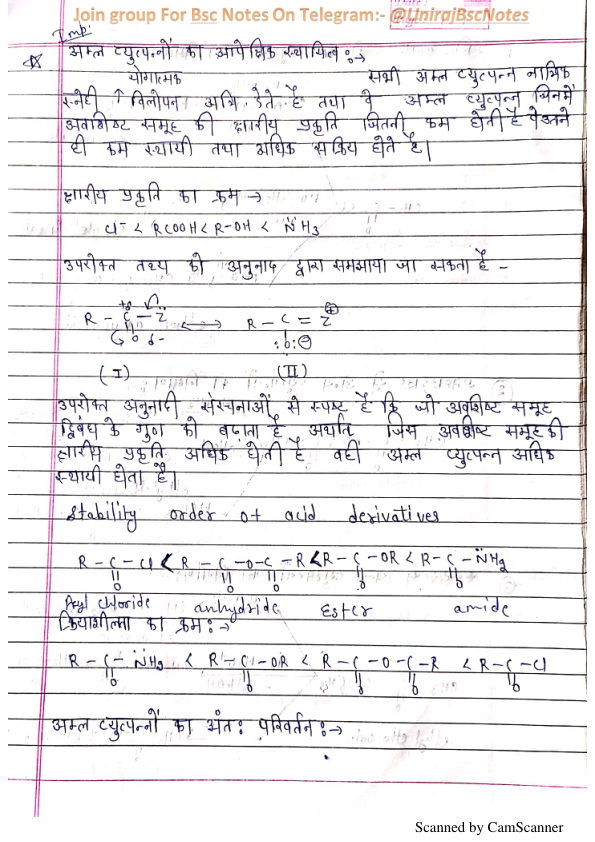 Join group For Bsc Notes On Telegram:- @UnirajBscNotes
Imp.
अम्ल व्युत्पन्नों का आपेक्षिक स्थायित्व :→
योगात्मक सभी अम्ल व्युत्पन्न नाभिक
स्नेही ↑ विलोपन अभि. देते है तथा वे अम्ल व्युत्पन्न जिनमें
अवशिष्ट समूह की क्षारीय प्रकृति जितनी कम होती है वे उतने
ही कम स्थायी तथा अधिक सक्रिय होते है।
क्षारीय प्रकृति का क्रम →
Cl⁻ < RCOOH < R-OH < N̈H3
उपरोक्त तथ्य को अनुनाद द्वारा समझाया जा सकता है -
R - C - Z̈ ⟷ R - C = Z⊕
δ+ O δ- :O:⊖
(I) (II)
उपरोक्त अनुनादी संरचनाओं से स्पष्ट है कि जो अवशिष्ट समूह
द्विबंध के गुण को बढाता है अर्थात जिस अवशिष्ट समूह की
क्षारीय प्रकृति अधिक होती है वही अम्ल व्युत्पन्न अधिक
स्थायी होता है।
Stability order of acid derivatives
R - C - Cl < R - C - O - C - R < R - C - OR < R - C - N̈H2
O O O O O
Acyl chloride anhydride Ester amide
क्रियाशीलता का क्रम :→
R - C - N̈H2 < R - C - OR < R - C - O - C - R < R - C - Cl
O O O O O
अम्ल व्युत्पन्नों का अंत: परिवर्तन :→
Scanned by CamScanner